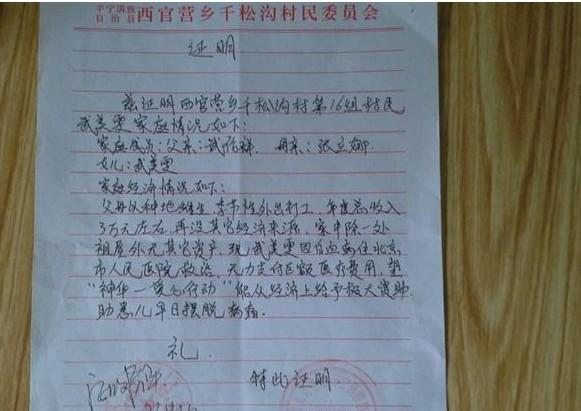 丰宁满族自治县西官营乡千松沟村民委员会
证明
兹证明西官营乡千松沟村第16组村民
武美雯家庭情况如下:
家庭成员:父亲:武 母亲:张立娜
女儿:武美雯
家庭经济情况如下:
父母以种地维生,季节性外出打工,年度总收入
3万元左右,再没其它经济来源,家中除一处
祖屋外无其它资产,现武美雯因白血病住北京
市人民医院救治,无力支付巨额医疗费用,望
“神华一爱心行动”能从经济上给予极大资助,
助患儿早日摆脱病痛.
礼.
特此证明.